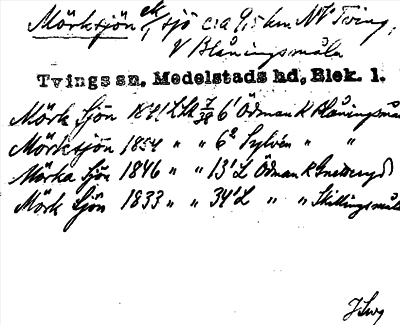 Mörksjön ek / sjö c:a 9,5 km NV Tving,
V Blåningsmåla
Tvings sn, Medelstads hd, Blek. l.
Mörk Sjön 1841 6 Ödman K Blåningsmåla
Mörksjön 1854 " " 6 Sylvén " "
Mörka Sjön 1846 " " 13 L Ödman K
Mörk Sjön 1833 " " 34 L " " Skillingsmåla